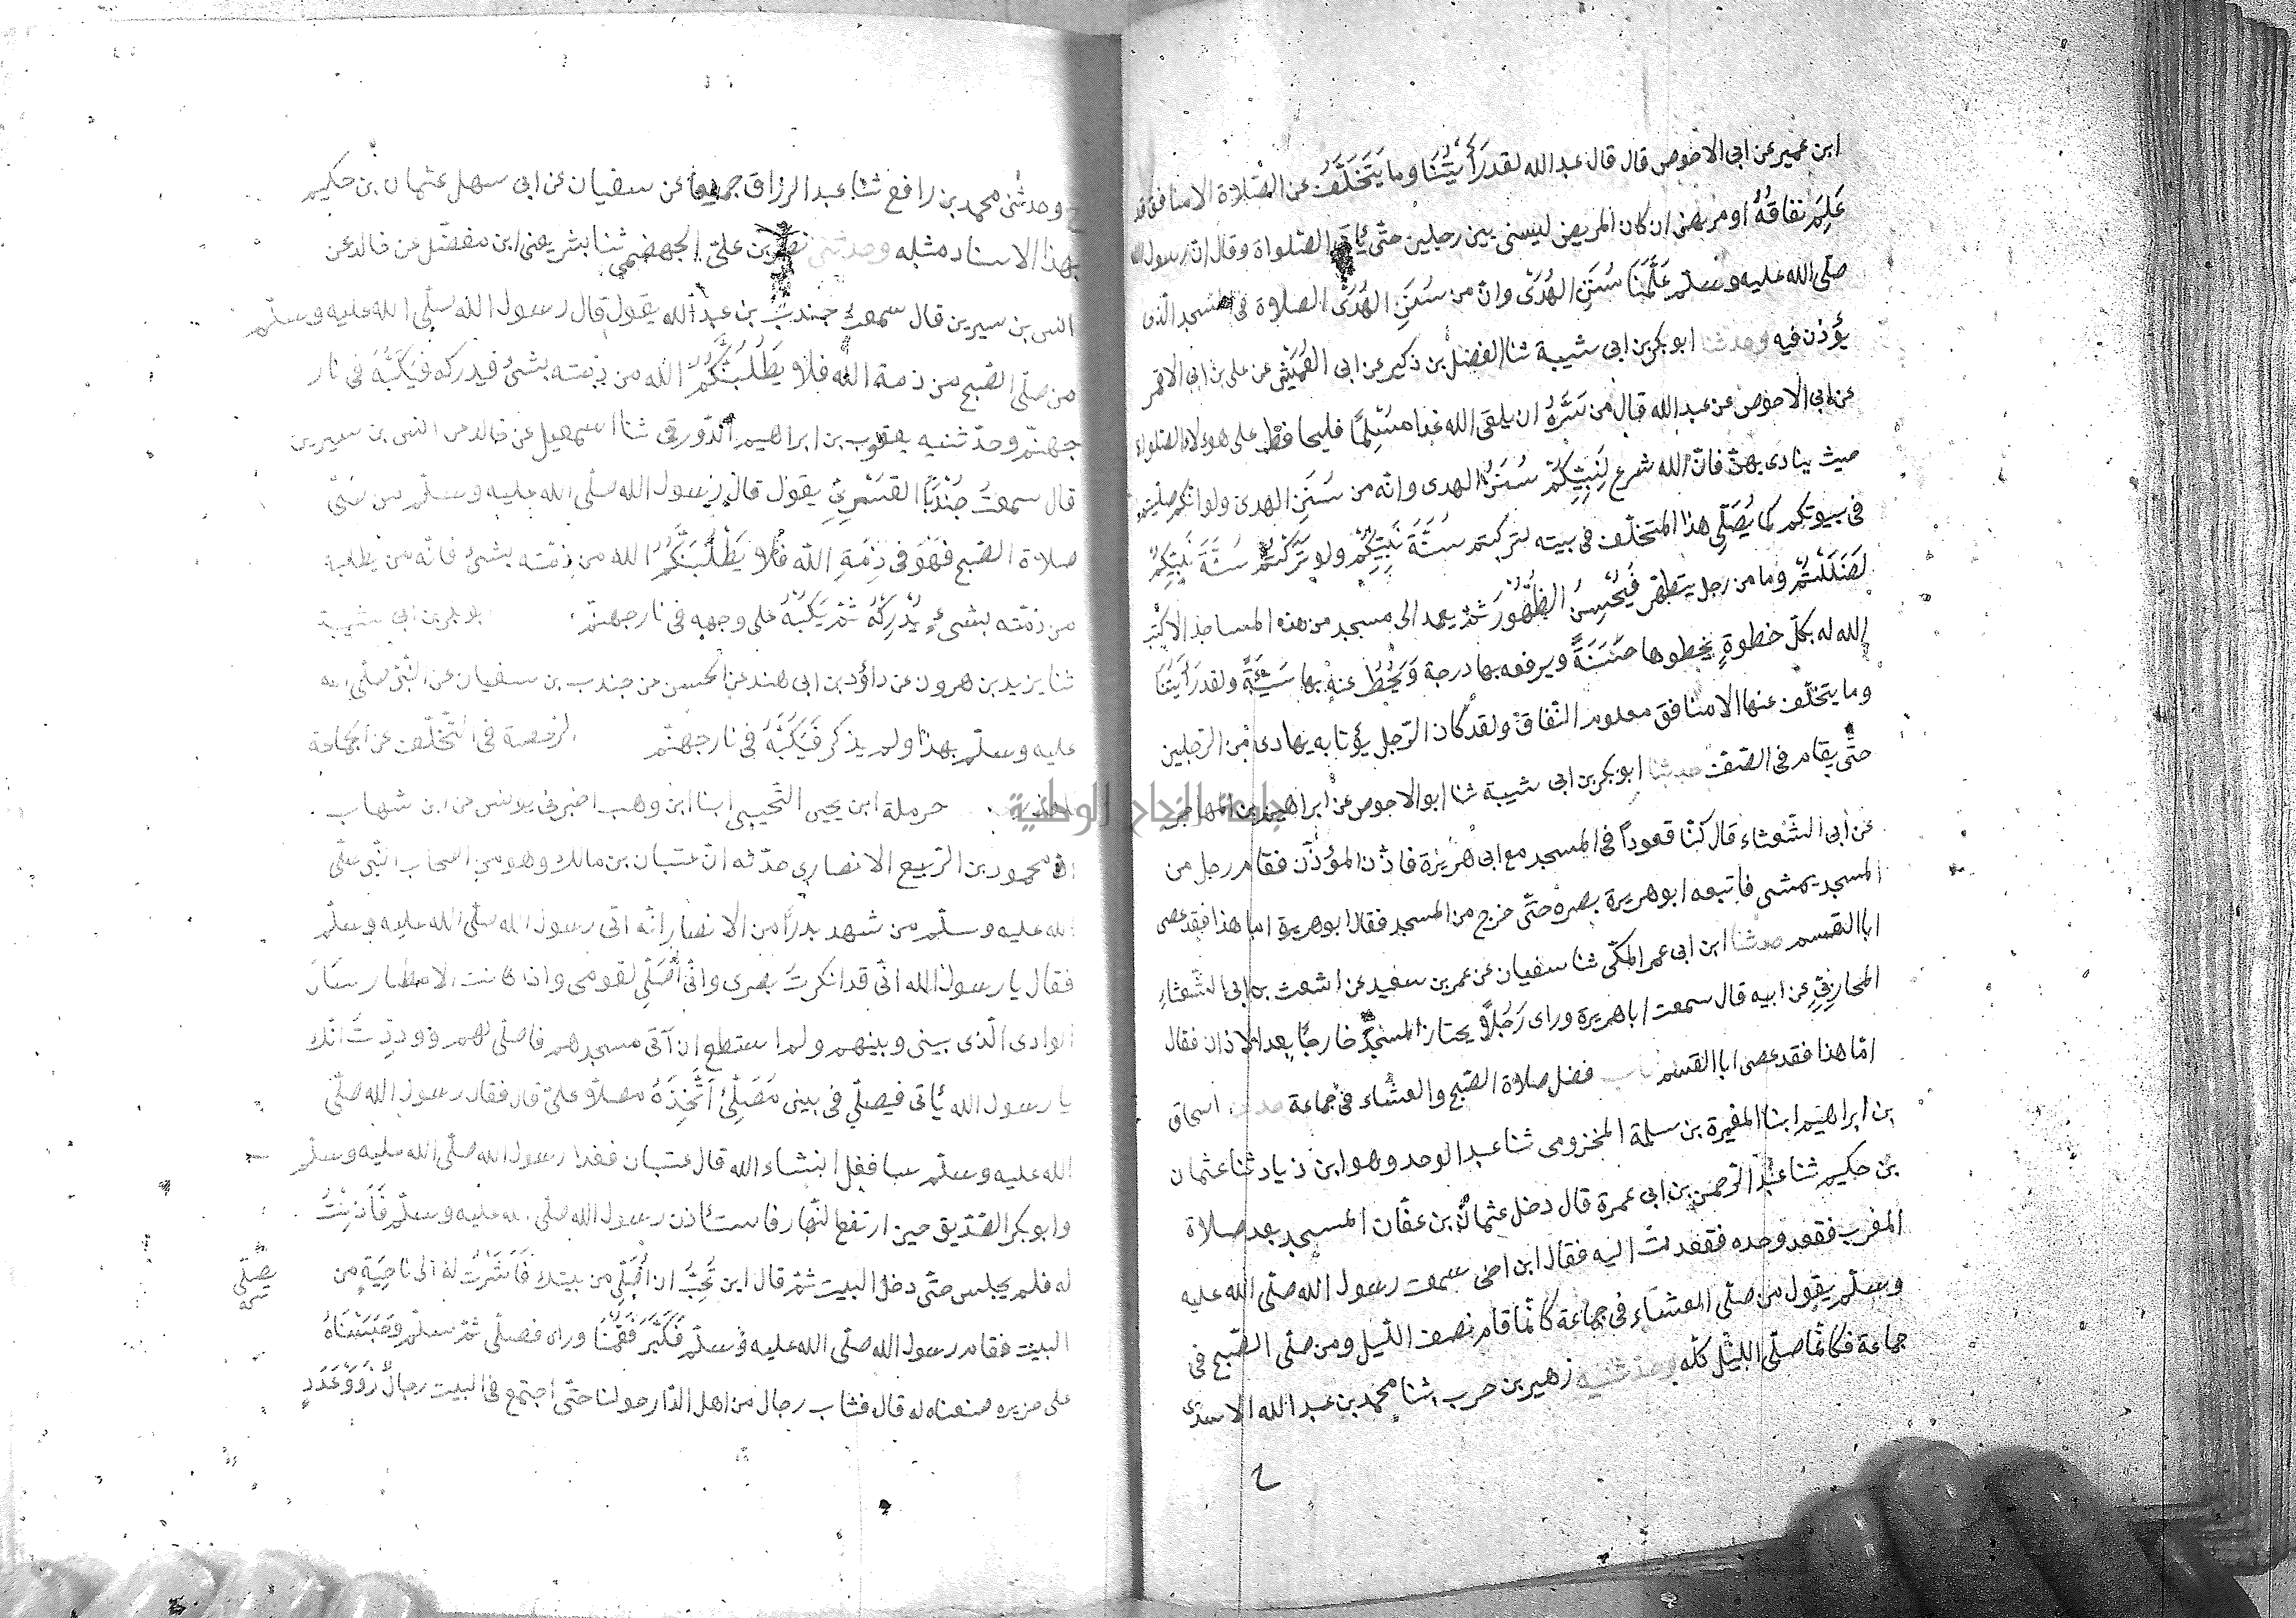 ابن عمير عن ابى الاحوص قال قال عبد الله لقد رَأَيْتُنَا وما يَتَخَلَّفُ عن الصّلاة الا منافق قد
عَلِمَ نفاقُهُ او مريض ان كان المريض ليمشى بين رجلين حتّى يأتى الصّلواة وقال انّ رسول الله
صلّى الله عليه وسلّم عَلَّمَنَا سُنَنَ الهُدَى وانّ من سُنَنِ الهُدَى الصلاة فى المسجد الّذى
يؤذن فيه وحدثنا ابو بكر بن ابى شيبة ثنا الفضل بن ذكير عن ابى العُمَيْسِ عن على بن ابى الاقمر
عن ابى الاحوص عن عبد الله قال من سَرَّهُ ان يلقى الله غدا مُسْلِمًا فليحافظ على هولاء الصلواة
حيث ينادى بهنّ فانّ الله شرع لِنَبِيّكُمْ سُنَنَ الهدى وانّه من سُنَنِ الهدى ولو انّكم صلّيتم
فى بيوتكم كما يُصَلِّى هذا المتخلّف فى بيته لتركتم سُنَّةَ نَبِيِّكُمْ ولو تَرَكْتُمْ سُنَّةَ نَبِيِّكُمْ
لَضَلَلْتُمْ وما من رجل يتطهّر فَيُحْسِنُ الطُّهُورَ ثمّ يعمد الى مسجد من هذه المساجد الا كتب
الله له بكلّ خطوةٍ يخطوها حَسَنَةً ويرفعه بها درجة وَيَحُطُّ عنه بها سَيِّئَةً ولقد رَأَيْتُنَا
وما يتخلّف عنها الا منافق معلوم النّفاق ولقد كان الرّجل يؤتا به يهادى بين الرّجلين
حتّى يقام فى الصّف حدثنا ابو بكر بن ابى شيبة ثنا ابو الاحوص عن ابراهيم بن المهاجر
عن ابى الشّعثاء قال كنّا قعوداً فى المسجد مع ابى هريرة فاذّن المؤذّن فقام رجل من
المسجد يمشى فاتبعه ابو هريرة بصره حتّى خرج من المسجد فقال ابو هريرة اما هذا فقد عصى
ابا القسم حدثنا ابن ابى عمر المكّى ثنا سفيان عن عمر بن سعيد عن اشعث بن ابى الشّعثاءِ
المحاربِىِّ عن ابيه قال سمعت ابا هريرة وراى رَجُلاً يجتاز المسجدَ خارجًا بعد الاذان فقال
امّا هذا فقد عصى ابا القسم باب فضل صلاة الصّبح والعشاء فى جماعة حدثنا اسحاق
بن ابراهيم ابنا المغيرة بن سلمة المخزومى ثنا عبد الوحد وهو ابن زياد ثنا عثمان
بن حكيم ثنا عَبْد الرّحمن بن ابى عمرة قال دخل عثمانُ بن عفّان المسجد بعد صلاة
المغرب فقعد وحده فقعدت اليه فقال ابن اخى سمعت رسول الله صلّى الله عليه
وسلّم يقول من صلّى العشاء فى جماعة كانّما قام نصف اللّيل ومن صلّى الصّبح فى
جماعة فكانّما صلّى اللّيل كلّه وحدثنيه زهير بن حرب ثنا محمد بن عبد الله الاسدى
ح وحدثنى محمد بن رافع ثنا عبد الرزاق جميعا عن سفيان عن ابى سهل عثمان بن حكيم
بهذا الاسناد مثله وحدثنى نصر بن علىّ الجهضمى ثنا بشر يعنى ابن مفضّل عن خالد عن
انس بن سيرين قال سمعت جندب بن عبد الله يقول قال رسول الله صلّى الله عليه وسلّم
من صلّى الصّبح من ذمة الله فلا يَطْلُبَنَّكُمْ الله من ذمته بشىء فيدركه فَيَكُبَّهُ فى نار
جهنّم وحدّثنيه يعقوب بن ابراهيم الدّورقى ثنا اسمعيل عن خالد عن انس بن سيرين
قال سمعتُ جُنْدُبًا القسْرِىِّ يقول قال رسول الله صلّى الله عليه وسلّم من صلّى
صلاة الصّبح فَهُوَ فى ذِمّةِ الله فلا يَطْلُبَنَّكُمُ الله من ذمّته بشىء فانّه من يطلبه
من ذمّته بشىءٍ يُدْرِكْهُ ثمّ يَكُبّهُ على وجهه فى نار جهنّم ابو بكر بن ابى شيبة
ثنا يزيد بن هرون عن داؤد بن ابى هند عن الحسن عن جندب بن سفيان عن النّبىّ صلّى الله
عليه وسلّم بهذا ولم يذكر فَيَكُبَّهُ فى نار جهنّم الرخصة فى التّخلّف عن الجماعة
حرملة ابن يحيى التّجيبى ابنا ابن وهب اخبرنى يونس عن ابن شهاب
انّ محمود بن الرّبيع الانصارى حدّثه انّ عتبان بن مالك وهو من اصحاب النّبى صلّى
الله عليه وسلّم من شهد بدرًا من الانصار انّه اتى رسول الله صلّى الله عليه وسلّم
فقال يا رسول الله انّى قد انكرتُ بصرى وانّى أُصَلِّى لقومى واذا كانت الامطار سَالَ
الوادى الّذى بينى وبينهم ولم استطع ان آتى مسجدهم فاصلّى لهم وودِدتُ انّك
يا رسول الله يأتى فيصلّى فى بيتى مُصَلًّى أَتَّخِذَهُ مصلّا علىّ قال فقال رسول الله صلّى
الله عليه وسلّم سافعل انشاء الله قال عتبان فغدا رسول الله صلّى الله عليه وسلّم
وابو بكر الصّدّيق حين ارتفع النّهار فاستئاذن رسول الله صلّى الله عليه وسلّم فَأَذِنْتُ
له فلم يجلس حتّى دخل البيت ثمّ قال اين تُحِبُّ ان أُصَلِّى من بيتك فَأَشَرْتُ له الى ناحِيَةٍ من
يصلّى
البيت فقام رسول الله صلّى الله عليه وسلّم فَكَبَّرَ فَقُمْنَا وراه فصلّى ثمّ سلّم وحَبَسْنَاهُ
على حزيره صنعناه له قال فثاب رجال من اهل الدّار حولنا حتّى اجتمع فى البيت رجالٌ ذوو عَدَدٍ
جامعة النجاح الوطنية